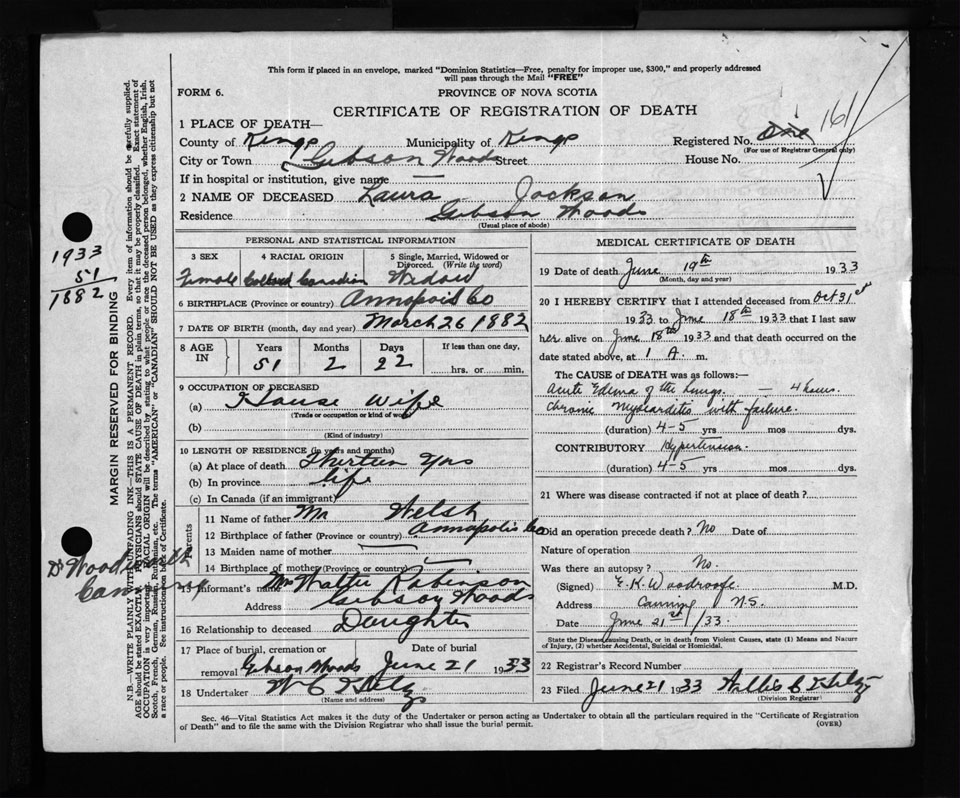 This form if placed in an envelope, marked "Dominion Statistics—Free, penalty for improper use, $300," and properly addressed
will pass through the Mail "FREE"
FORM 6.
PROVINCE OF NOVA SCOTIA
CERTIFICATE OF REGISTRATION OF DEATH
161
1 PLACE OF DEATH—
County of Kings Municipality of Kings Registered No. One
(For use of Registrar General only)
City or Town Gibson Woods Street House No.
If in hospital or institution, give name —
2 NAME OF DECEASED Laura Jackson
Residence Gibson Woods
(Usual place of abode)
PERSONAL AND STATISTICAL INFORMATION
3 SEX 4 RACIAL ORIGIN 5 Single, Married, Widowed or
Divorced. (Write the word)
Female Canadian Widow
6 BIRTHPLACE (Province or country) Annapolis Co
7 DATE OF BIRTH (month, day and year) March 26 1882
8 AGE IN Years Months Days If less than one day,
51 2 22 hrs. or min.
9 OCCUPATION OF DECEASED
(a) House wife
(Trade or occupation or kind of work)
(b)
(Kind of industry)
10 LENGTH OF RESIDENCE (in years and months)
(a) At place of death Thirteen Yrs
(b) In province life
(c) In Canada (if an immigrant)
Parents
11 Name of father Mr Welsh
12 Birthplace of father (Province or country) Annapolis Co
13 Maiden name of mother
14 Birthplace of mother (Province or country)
15 Informant's name Mrs Walter Robinson
Address Gibson Woods
16 Relationship to deceased Daughter
17 Place of burial, cremation or Date of burial
removal Gibson Woods June 21 1933
18 Undertaker
(Name and address)
MEDICAL CERTIFICATE OF DEATH
19 Date of death June 19th 1933
(Month, day and year)
20 I HEREBY CERTIFY that I attended deceased from Oct 31st
1933 to June 18th 1933 that I last saw
her alive on June 18th 1933 and that death occurred on the
date stated above, at 1 A. m.
The CAUSE OF DEATH was as follows:—
Acute Edema of the lungs. — 4 hours.
Chronic Myocarditis with failure.
(duration) 4-5 yrs mos dys.
CONTRIBUTORY Hypertension.
(duration) 4-5 yrs mos dys.
21 Where was disease contracted if not at place of death?
Did an operation precede death? No Date of
Nature of operation
Was there an autopsy? No.
(Signed) E. K. Woodroofe. M.D.
Address Canning N.S.
Date June 21st/33.
State the Disease causing Death, or in death from Violent Causes, state (1) Means and Nature
of Injury, (2) whether Accidental, Suicidal or Homicidal.
22 Registrar's Record Number
23 Filed June 21 1933
(Division Registrar)
Sec. 46—Vital Statistics Act makes it the duty of the Undertaker or person acting as Undertaker to obtain all the particulars required in the "Certificate of Registration
of Death" and to file the same with the Division Registrar who shall issue the burial permit. (OVER)
1933
51
1882
MARGIN RESERVED FOR BINDING
N.B.—WRITE PLAINLY WITH UNFADING INK—THIS IS A PERMANENT RECORD. Every item of information should be carefully supplied.
AGE should be stated EXACTLY. PHYSICIANS should STATE CAUSE OF DEATH in plain terms, so that it may be properly classified. Exact statement of
OCCUPATION is very important. RACIAL ORIGIN will be described by stating to what people or race the deceased person belonged, whether English, Irish,
Scotch, French, German, Russian, Ruthenian, etc. The terms "AMERICAN" or "CANADIAN" SHOULD NOT BE USED as they express citizenship but not
a race or people. See instructions on back of Certificate.